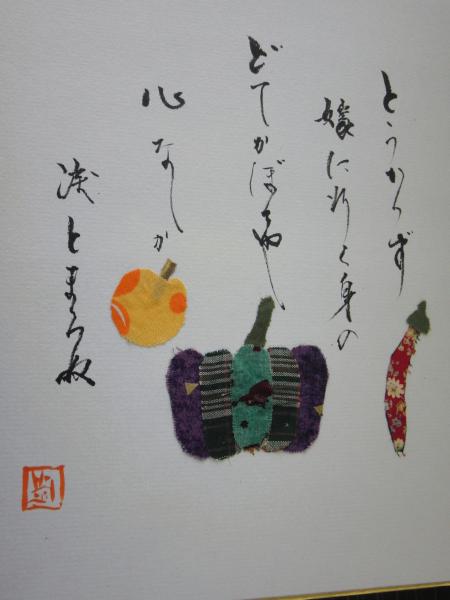 とうからず
嫁に行く身の
どてかぼちゃ
心なしか
涙とまらぬ